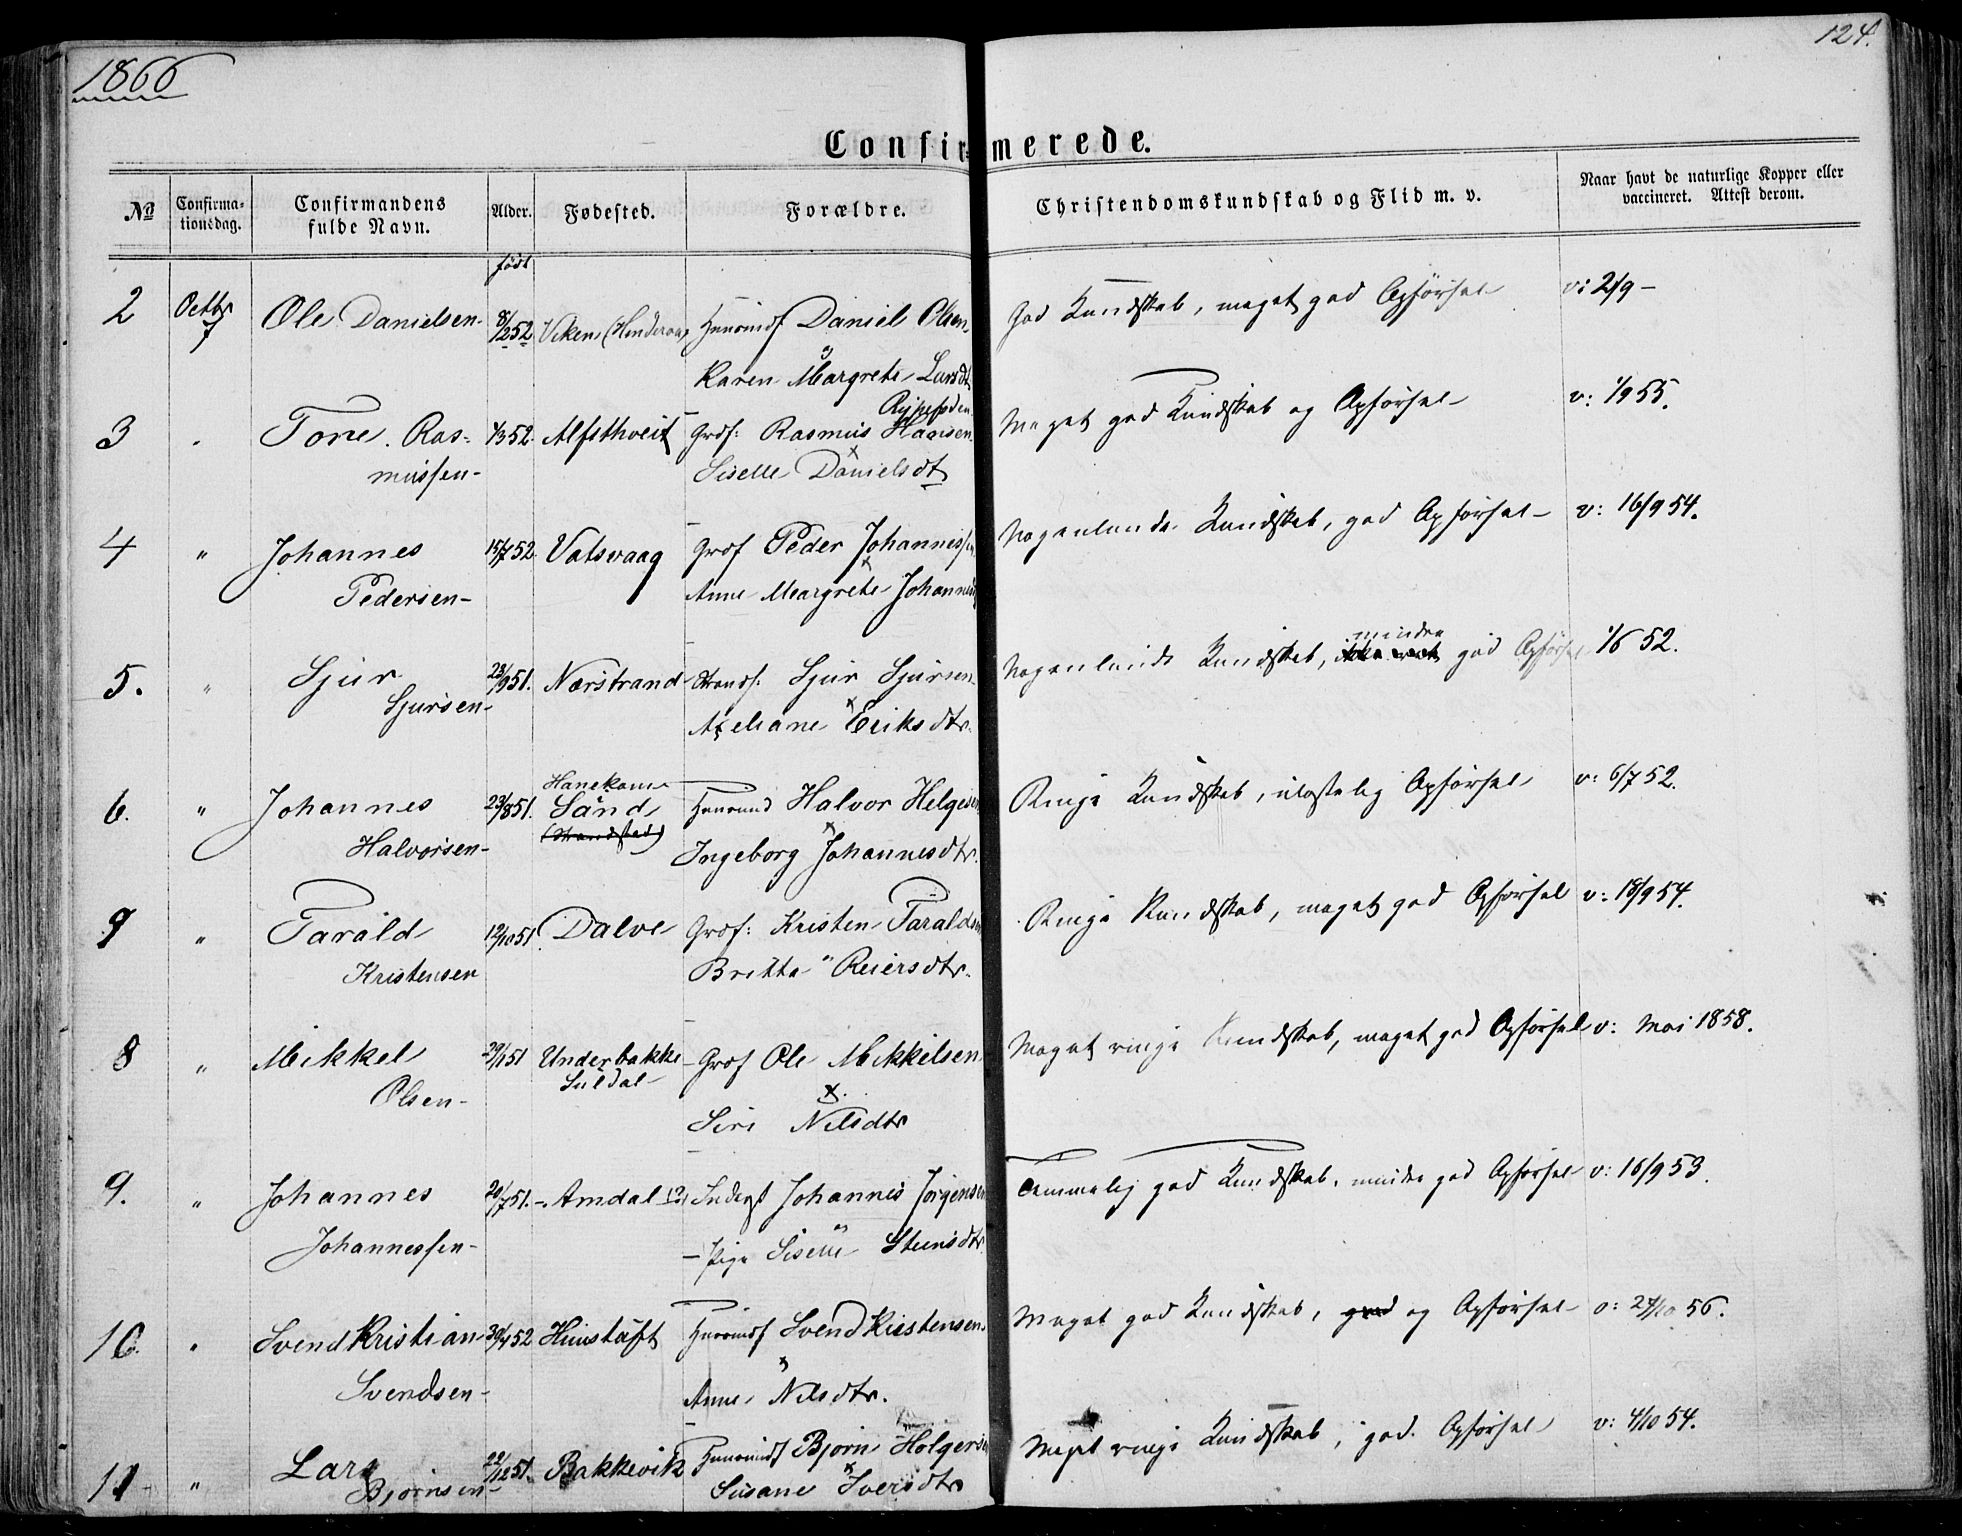 1866
124.
Confirmerede.
No
Confirma-
tionsdag.
Confirmandens
fulde Navn.
Alder.
Fødested.
Forældre.
Christendomskundskab og Flid m. v.
Naar havt de naturlige Kopper eller
vaccineret. Attest derom.
født
2 Octbr Ole Danielsen 8/2 52 Viken Daniel Olsen God Kundskab, meget god Opførsel v: 2/9
7
Karen Margrete Larsdt
3 Tone Ras- 1/3 52. Alfsthveit Grdf: Rasmus Hansen Meget god Kundskab og Opførsel v: 1/9 55.
mussen Siselle Danielsdt
4 " Johannes 15/7 52. Vatsvaag Grdf Peder Johannessen Nogenlunde Kundskab, god Opførsel v: 16/9 54.
Pedersen Anne Margrete
mindre
5. " Sjur 23/9 51. Nærstrand Strands: Sjur Sjursen Nogenlunde Kundskab, god Opførsel 1/6 52.
Sjursen Axeliane Eriksdtr.
Hanekam
6. " Johannes 23/8 51. Sand Halvor Helgesen Ringe Kundskab, ulastelig Opførsel v: 6/7 52.
Halvorsen (Strandsted) Ingeborg Johannesdtr.
7 " Tarald 12/10 51. Dalve Grdf: Kristen Taraldsen Ringe Kundskab, meget god Opførsel v: 18/9 54.
Kristensen Britta Reiersdtr.
8 " Mikkel 29/1 51 Underbakke Grdf Ole Mikkelsen Meget ringe Kundskab, meget god Opførsel v: Mai 1858.
Olsen Suldal
Siri Nilsdtr
9. " Johannes 20/7 51. Amdal (?) Johannes Jørgensen Temmelig god Kundskab, mindre god Opførsel v: 16/9 53.
Johannessen Pige Siselle Steinsdtr.
10. " Svend Kristian 30/4 52 Himstaft Svend Kristensen Meget god Kundskab, god og Opførsel v: 24/10 56.
Svendsen Anne Nilsdtr.
11 " Lars 22/12 51. Bakkevik Bjørn Holgersen Meget ringe Kundskab, god Opførsel v: 4/10 54.
Bjørnsen Susane Iversdtr